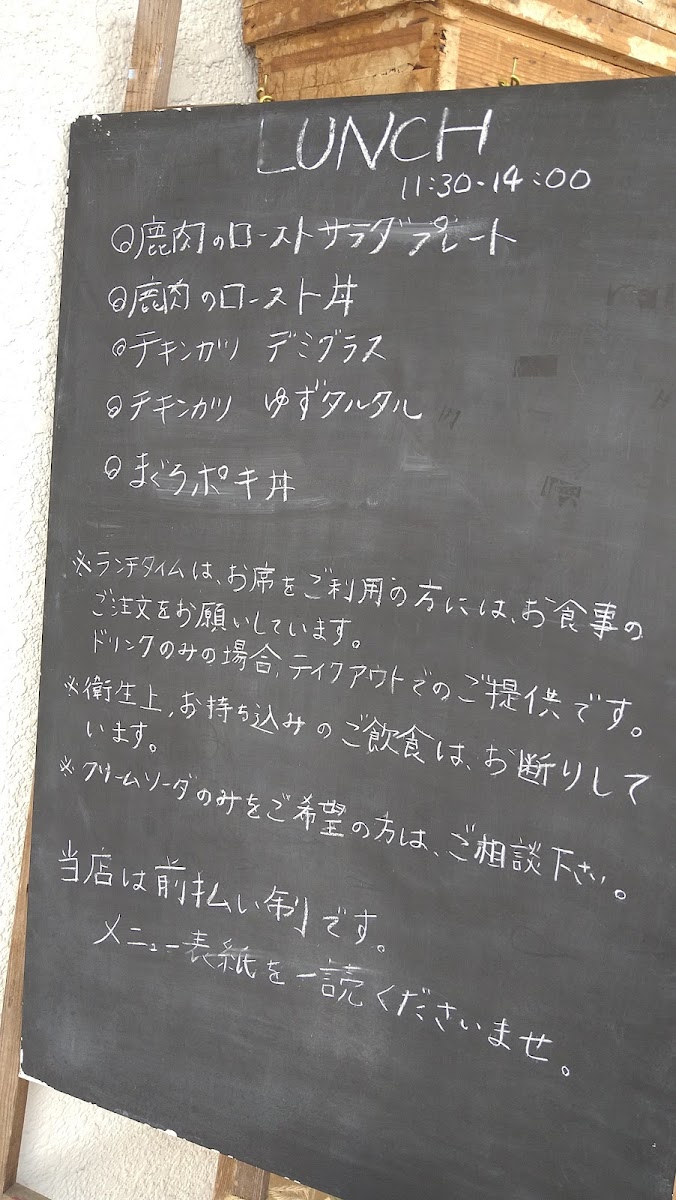 LUNCH
11:30-14:00
◎鹿肉のローストサラダプレート
◎鹿肉のロースト丼
◎チキンカツ デミグラス
◎チキンカツ ゆずタルタル
◎まぐろポキ丼
※ランチタイムは、お席をご利用の方には、お食事の
ご注文をお願いしています。
ドリンクのみの場合、テイクアウトでのご提供です。
※衛生上、お持ち込みのご飲食は、お断りして
います。
※クリームソーダのみをご希望の方は、ご相談下さい。
当店は前払い制です。
メニュー表紙を一読くださいませ。